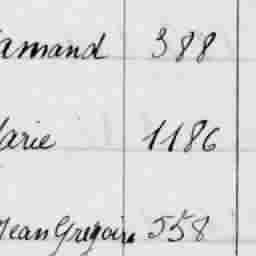 amand 388
arie 1186
Jean Gregoire 558